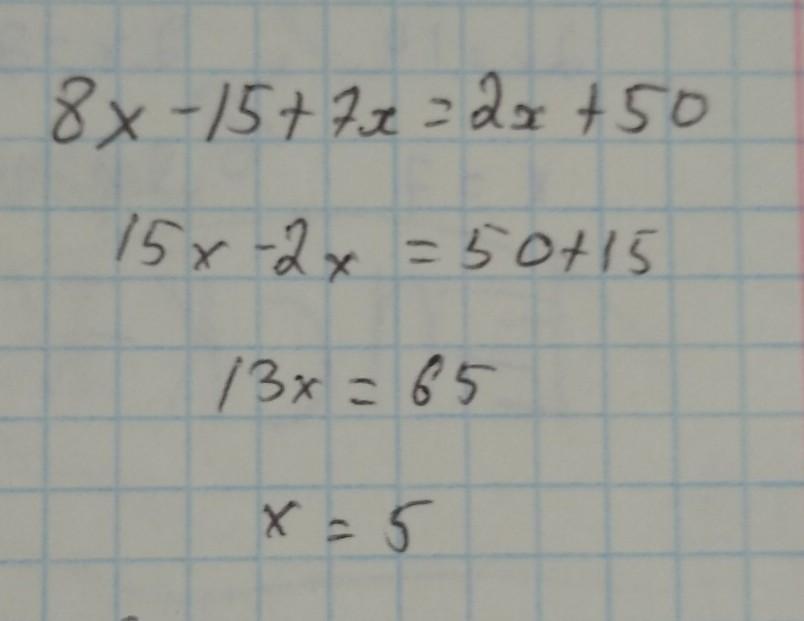 8x - 15 + 7x = 2x + 50
15x - 2x = 50 + 15
13x = 65
x = 5